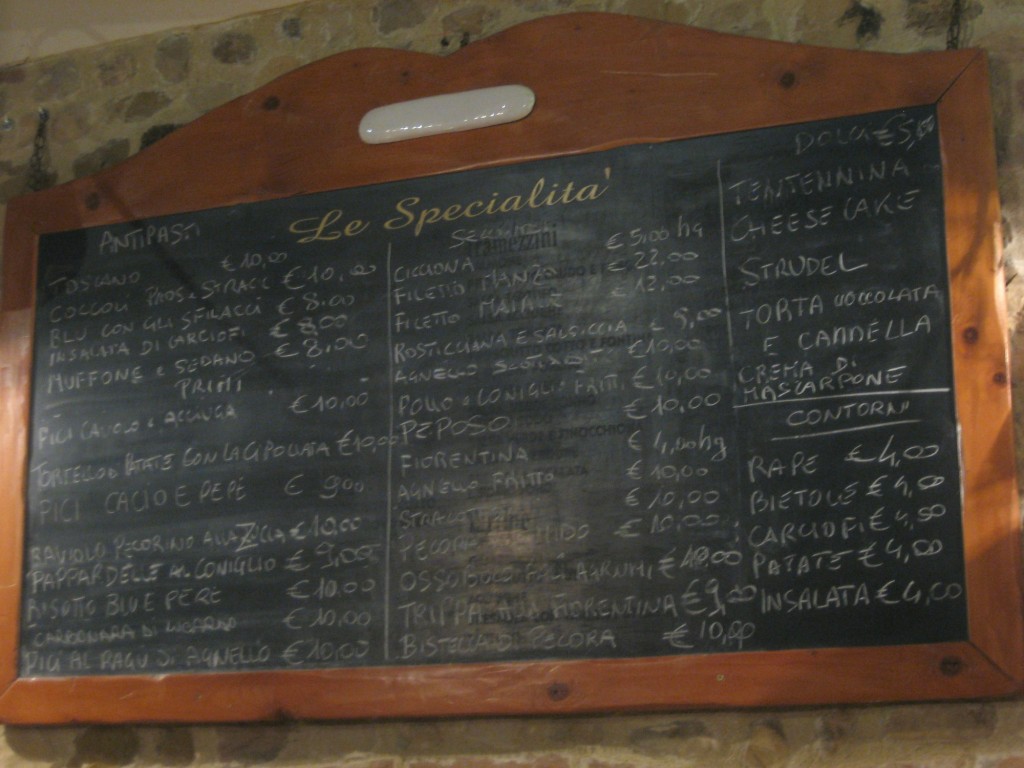 Le Specialita'
ANTIPASTI
TOSCANO € 10,00
COCCOLI PROS. e STRACC € 10,00
BLU CON GLI SFILACCI € 8,00
INSALATA DI CARCIOFI € 8,00
MUFFONE e SEDANO € 8,00
PRIMI
PICI e € 10,00
TORTELLO di PATATE CON LA CIPOLLATA € 10,00
PICI CACIO E PEPE € 9,00
RAVIOLO PECORINO ALLA € 10,00
PAPPARDELLE AL CONIGLIO € 9,00
RISOTTO BLU E PERE € 10,00
CARBONARA DI € 10,00
PICI AL RAGU DI AGNELLO € 10,00
CICCIONA € 5,00 hg
FILETTO MANZO € 22,00
FILETTO MAIALE € 12,00
ROSTICCIANA E SALSICCIA € 9,00
AGNELLO € 10,00
POLLO e CONIGLIO FRITTI € 10,00
PEPOSO € 10,00
FIORENTINA € 4,00 hg
AGNELLO FRITTO € 10,00
€ 10,00
PECORINO € 10,00
OSSOBUCO AGRUMI € 10,00
TRIPPA ALLA FIORENTINA € 9,00
BISTECCA DI PECORA € 10,00
DOLCI € 5,00
TENTENNINA
CHEESE CAKE
STRUDEL
TORTA CIOCCOLATA
E CANNELLA
CREMA DI
MASCARPONE
CONTORNI
RAPE € 4,00
BIETOLE € 4,00
CARCIOFI € 4,50
PATATE € 4,00
INSALATA € 4,00